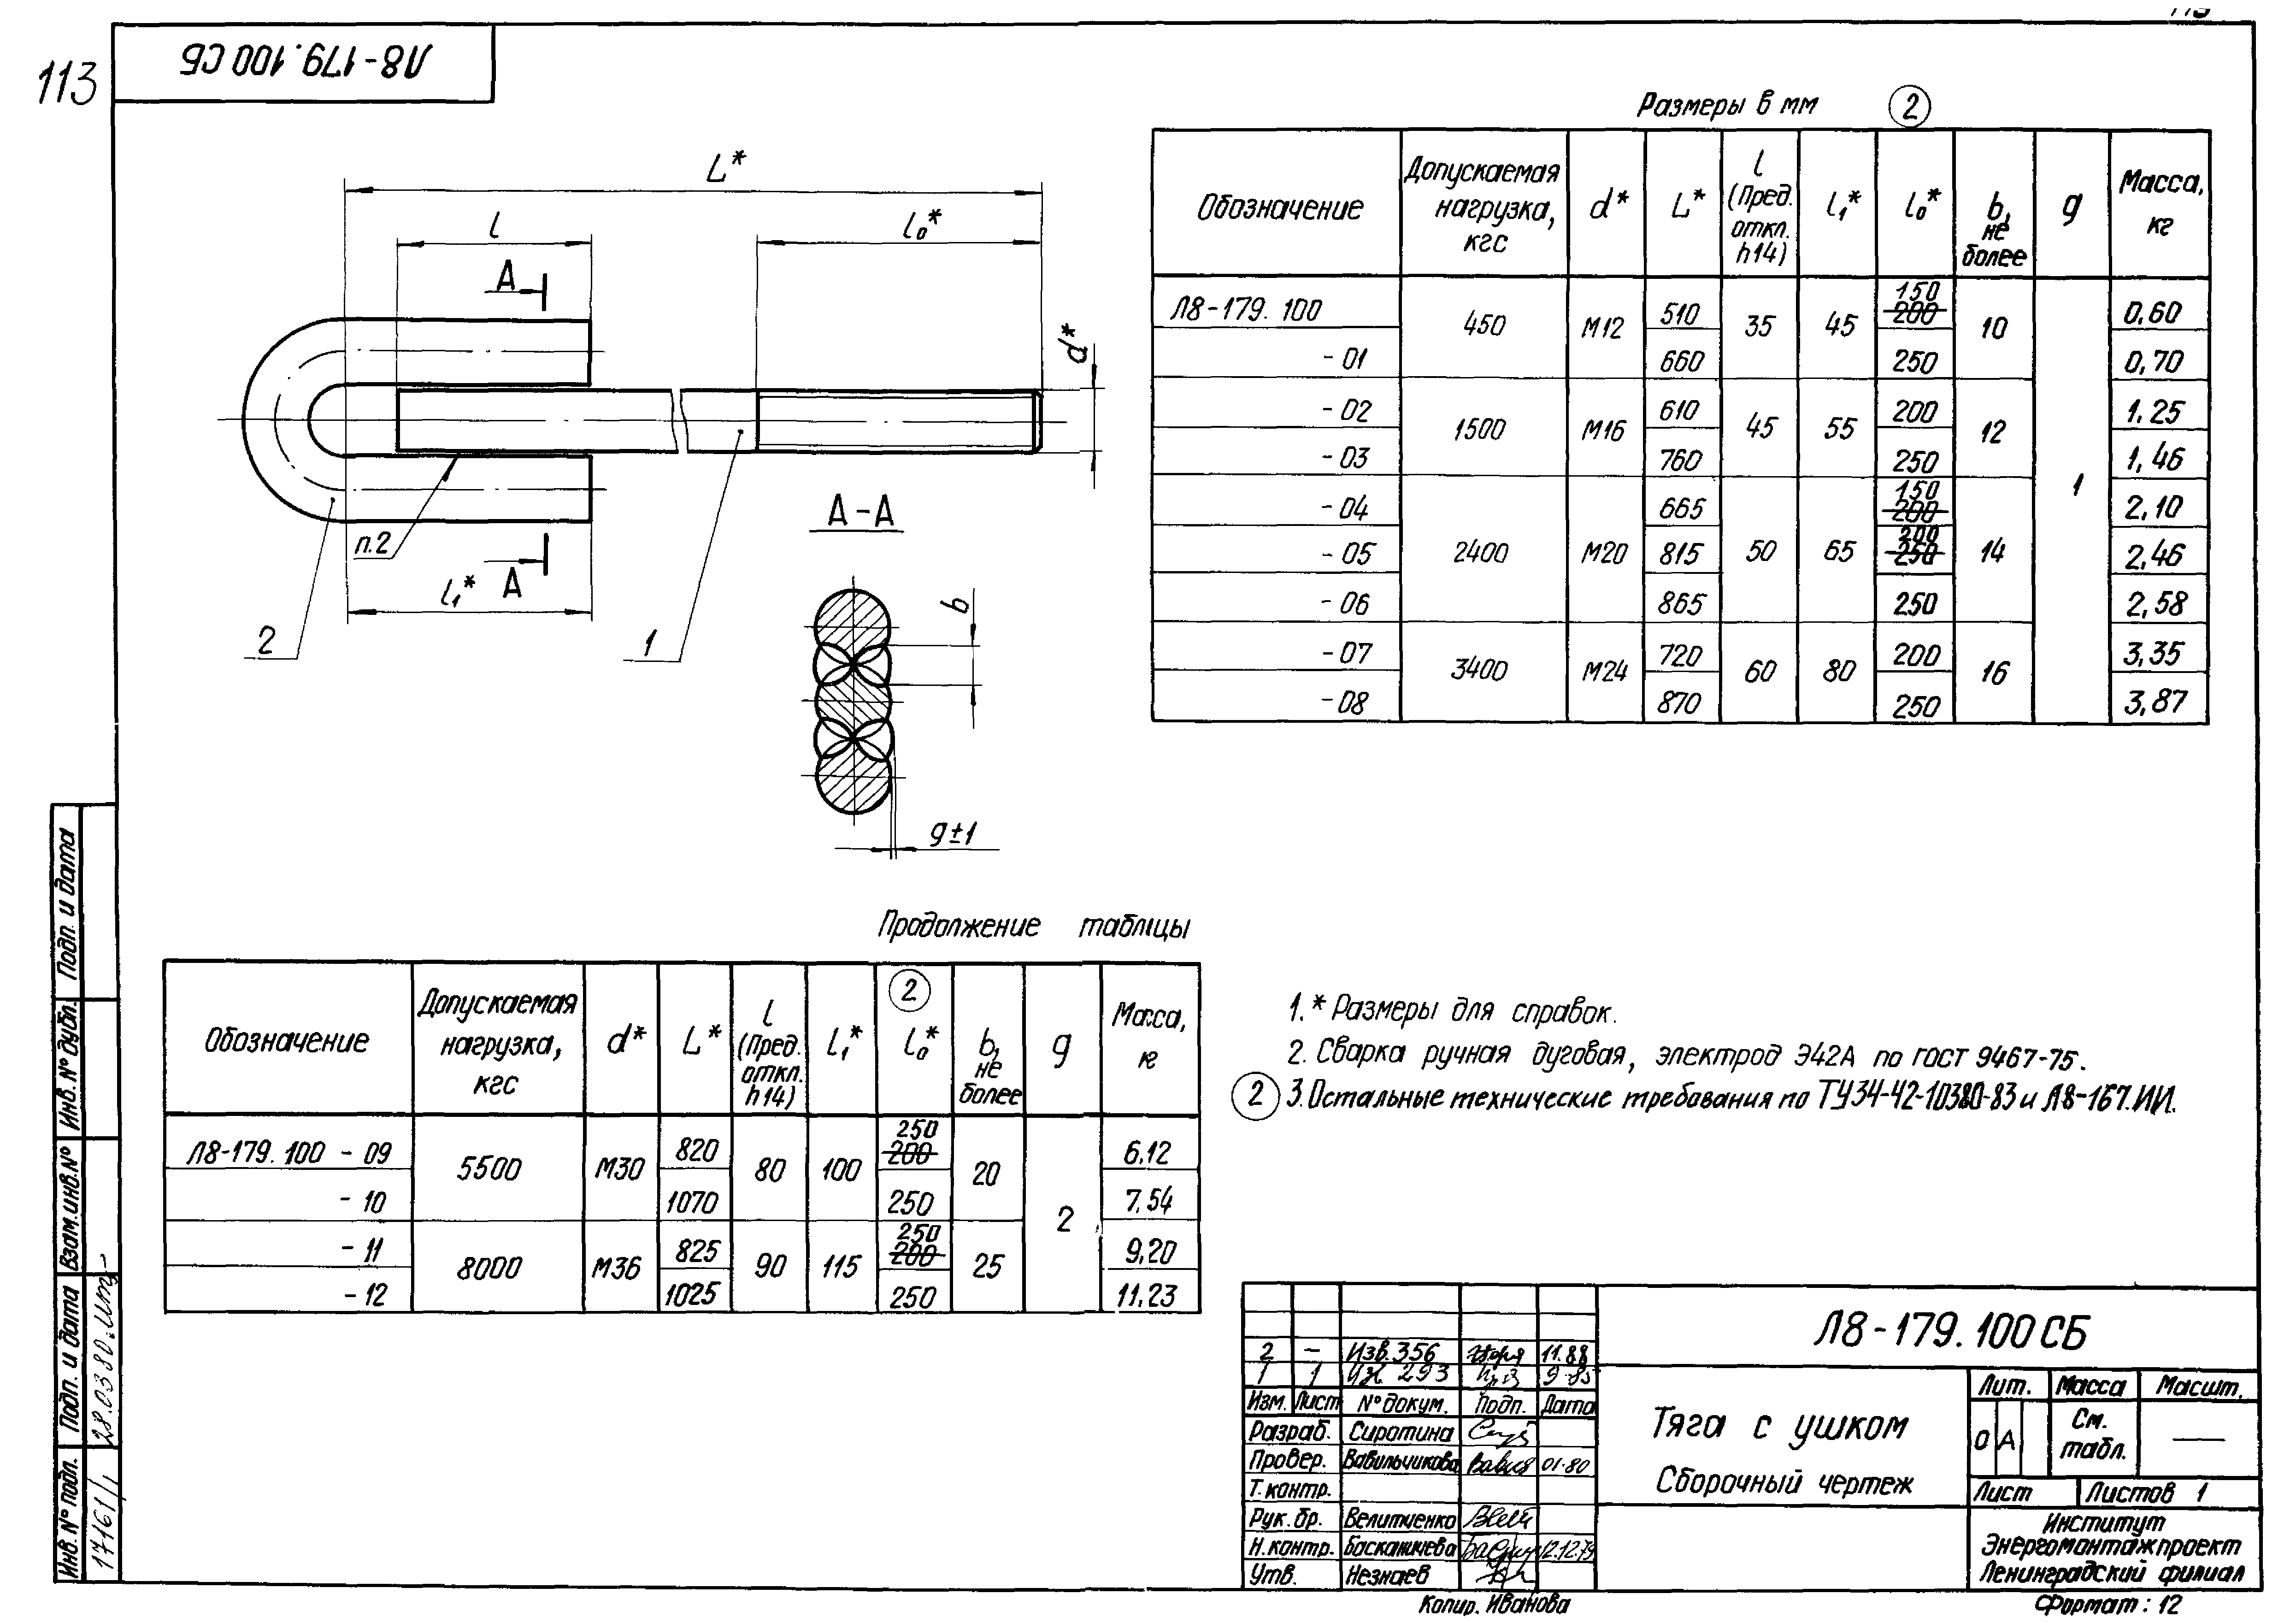 113
Л8-179.100 СБ
L*
l
l₀*
А
d*
п.2
А
l₁*
2
1
А-А
b
g±1
Размеры в мм 2
Обозначение | Допускаемая нагрузка, кгс | d* | L* | l (Пред. откл. h14) | l₁* | l₀* | b, не более | g | Масса, кг
Л8-179.100 | 450 | М12 | 510 | 35 | 45 | 150 200 | 10 | 1 | 0,60
-01 | 660 | 250 | 0,70
-02 | 1500 | М16 | 610 | 45 | 55 | 200 | 12 | 1,25
-03 | 760 | 250 | 1,46
-04 | 2400 | М20 | 665 | 50 | 65 | 150 200 | 14 | 2,10
-05 | 815 | 200 250 | 2,46
-06 | 865 | 250 | 2,58
-07 | 3400 | М24 | 720 | 60 | 80 | 200 | 16 | 3,35
-08 | 870 | 250 | 3,87
Продолжение таблицы
Обозначение | Допускаемая нагрузка, кгс | d* | L* | l (Пред. откл. h14) | l₁* | 2 l₀* | b, не более | g | Масса, кг
Л8-179.100 -09 | 5500 | М30 | 820 | 80 | 100 | 250 200 | 20 | 2 | 6,12
-10 | 1070 | 250 | 7,54
-11 | 8000 | М36 | 825 | 90 | 115 | 250 200 | 25 | 9,20
-12 | 1025 | 250 | 11,23
1. * Размеры для справок.
2. Сварка ручная дуговая, электрод Э42А по ГОСТ 9467-75.
2 3. Остальные технические требования по ТУ34-42-10380-83 и Л8-167.ИИ.
Подп. и дата
Инв. № дубл.
Взам. инв. №
Подп. и дата 28.03.80
Инв. № подл. 17161/1
2 - Изв. 356 11.88
1 1 293 9-85
Изм. Лист № докум. Подп. Дата
Разраб. Сиротина
Провер. Вавильчикова 01-80
Т. контр.
Рук. бр. Велитченко
Н. контр. 12.12.79
Утв. Незнаев
Л8-179.100 СБ
Тяга с ушком
Сборочный чертеж
Лит. Масса Масшт.
О А См. табл. —
Лист Листов 1
Институт
Энергомонтажпроект
Ленинградский филиал
Копир. Иванова
Формат: 12